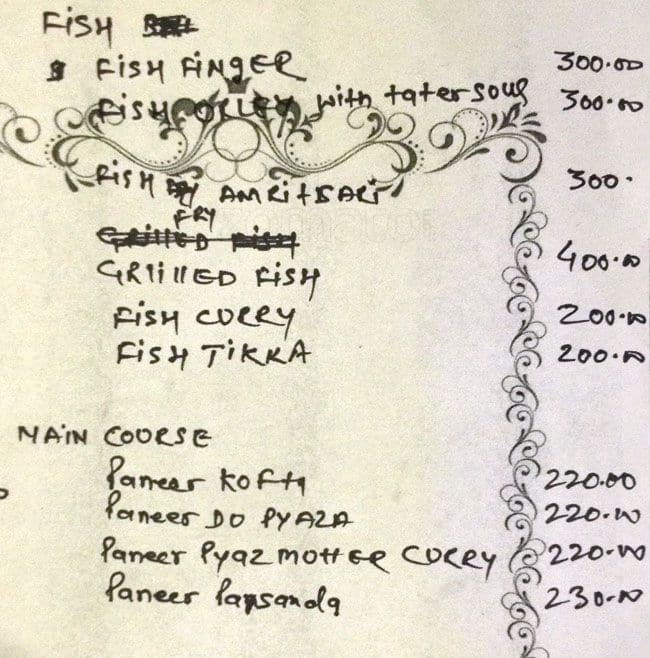 FISH
FISH FINGER 300.00
FISH ORLEY with tater souq 300.00
FISH FRY AMRITSARI 300.
GRILLED FISH
GRIILLED FISH 400.00
FISH CURRY 200.00
FISH TIKKA 200.00
MAIN COURSE
Paneer KOFTA 220.00
Paneer DO PYAZA 220.00
Paneer Pyaz MOTTER CURRY 220.00
Paneer Papsanda 230.00